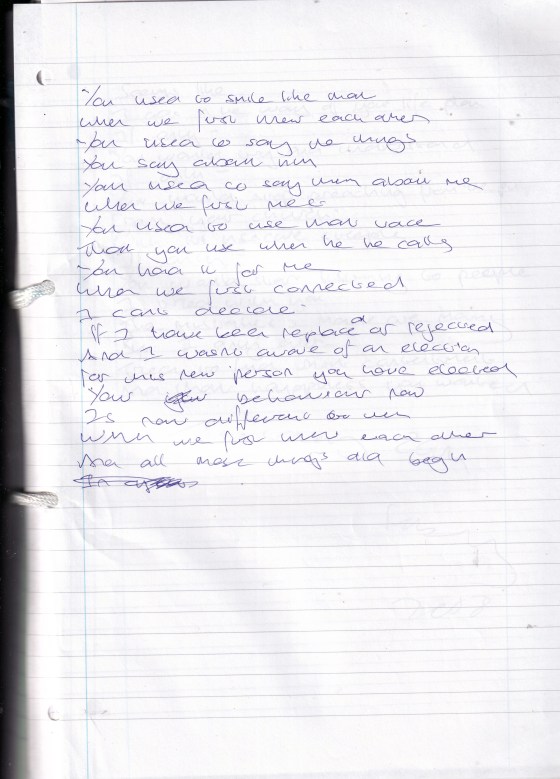 You used to smile like that
when we first knew each other
You used to say the things
You say about him
You used to say them about me
when we first met
You used to use that voice
That you use when he he calls
You had it for me
when we first connected
I cant decide
If I have been replaced or rejected
And I wasnt aware of an election
For this new person you have elected
Your behaviour now
Is now different to
when we first knew each other
And all those things did begin